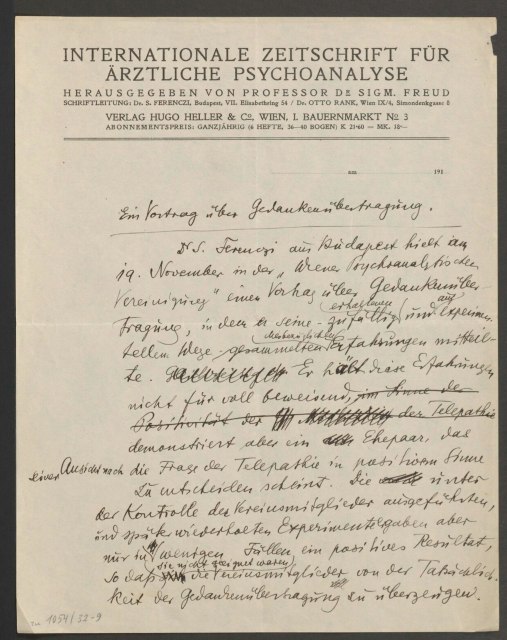 INTERNATIONALE ZEITSCHRIFT FÜR
ÄRZTLICHE PSYCHOANALYSE
HERAUSGEGEBEN VON PROFESSOR DR SIGM. FREUD
SCHRIFTLEITUNG: Dr. S. FERENCZI, Budapest, VII. Elisabethring 54 / Dr. OTTO RANK, Wien IX/4, Simondenkgasse 8
VERLAG HUGO HELLER & Co, WIEN, I. BAUERNMARKT No 3
ABONNEMENTSPREIS: GANZJÄHRIG (6 HEFTE, 36—40 BOGEN) K 21·60 = MK. 18·—
am 191
Ein Vortrag über Gedankenübertragung.
Dr S. Ferenczi aus Budapest hielt am
19. November in der „Wiener Psychoanalytischen
Vereinigung" einen Vortrag über Gedankenüber-
tragung, in dem er seine - zufällig erhaltenen und auf experimen-
tellem Wege - gesammelten Erfahrungen mitteil-
te. Er hält diese Erfahrungen
nicht für voll beweisend, im Sinne der
Positivität der der Telepathie
demonstriert aber ein Ehepaar, das
seiner Ansicht nach die Frage der Telepathie in positivem Sinne
zu entscheiden scheint. Die unter
der Kontrolle der Vereinsmitglieder ausgeführten,
und später wiederholten Experimente gaben aber
nur in wenigen Fällen, ein positives Resultat,
so daß sie nicht geeignet waren, die Vereinsmitglieder von der Tatsächlich-
keit der Gedankenübertragung zu überzeugen.
zu 1054/32-9